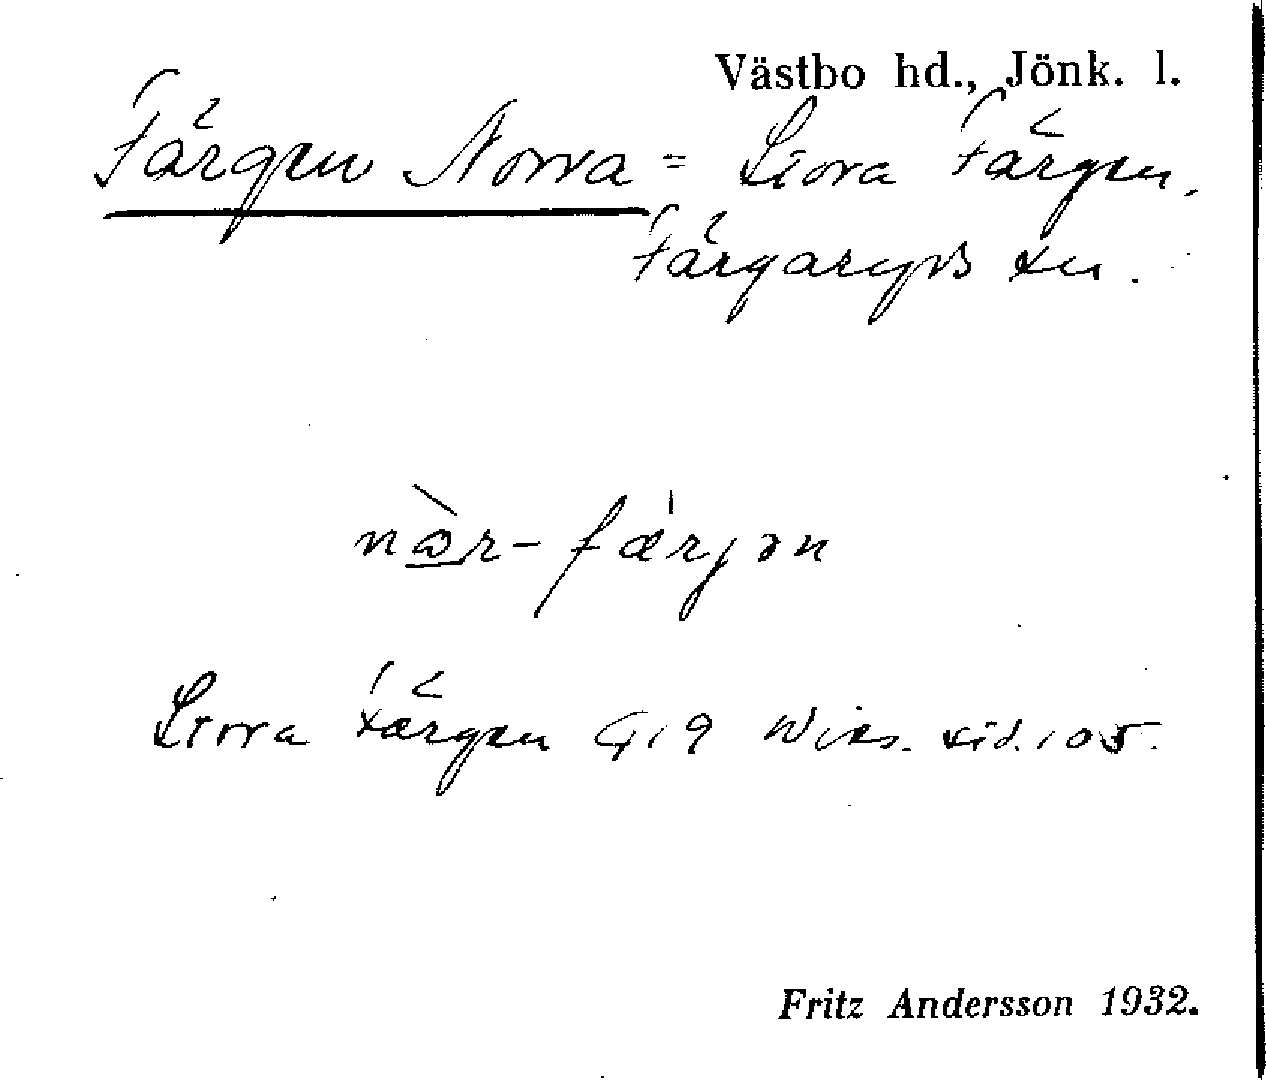 Västbo hd., Jönk. l.
Färgen Norra = Stora Färgen,
Färgaryds sn.
nö̀r-færjən
Stora Färgen G19 Wies. sid. 105.
Fritz Andersson 1932.